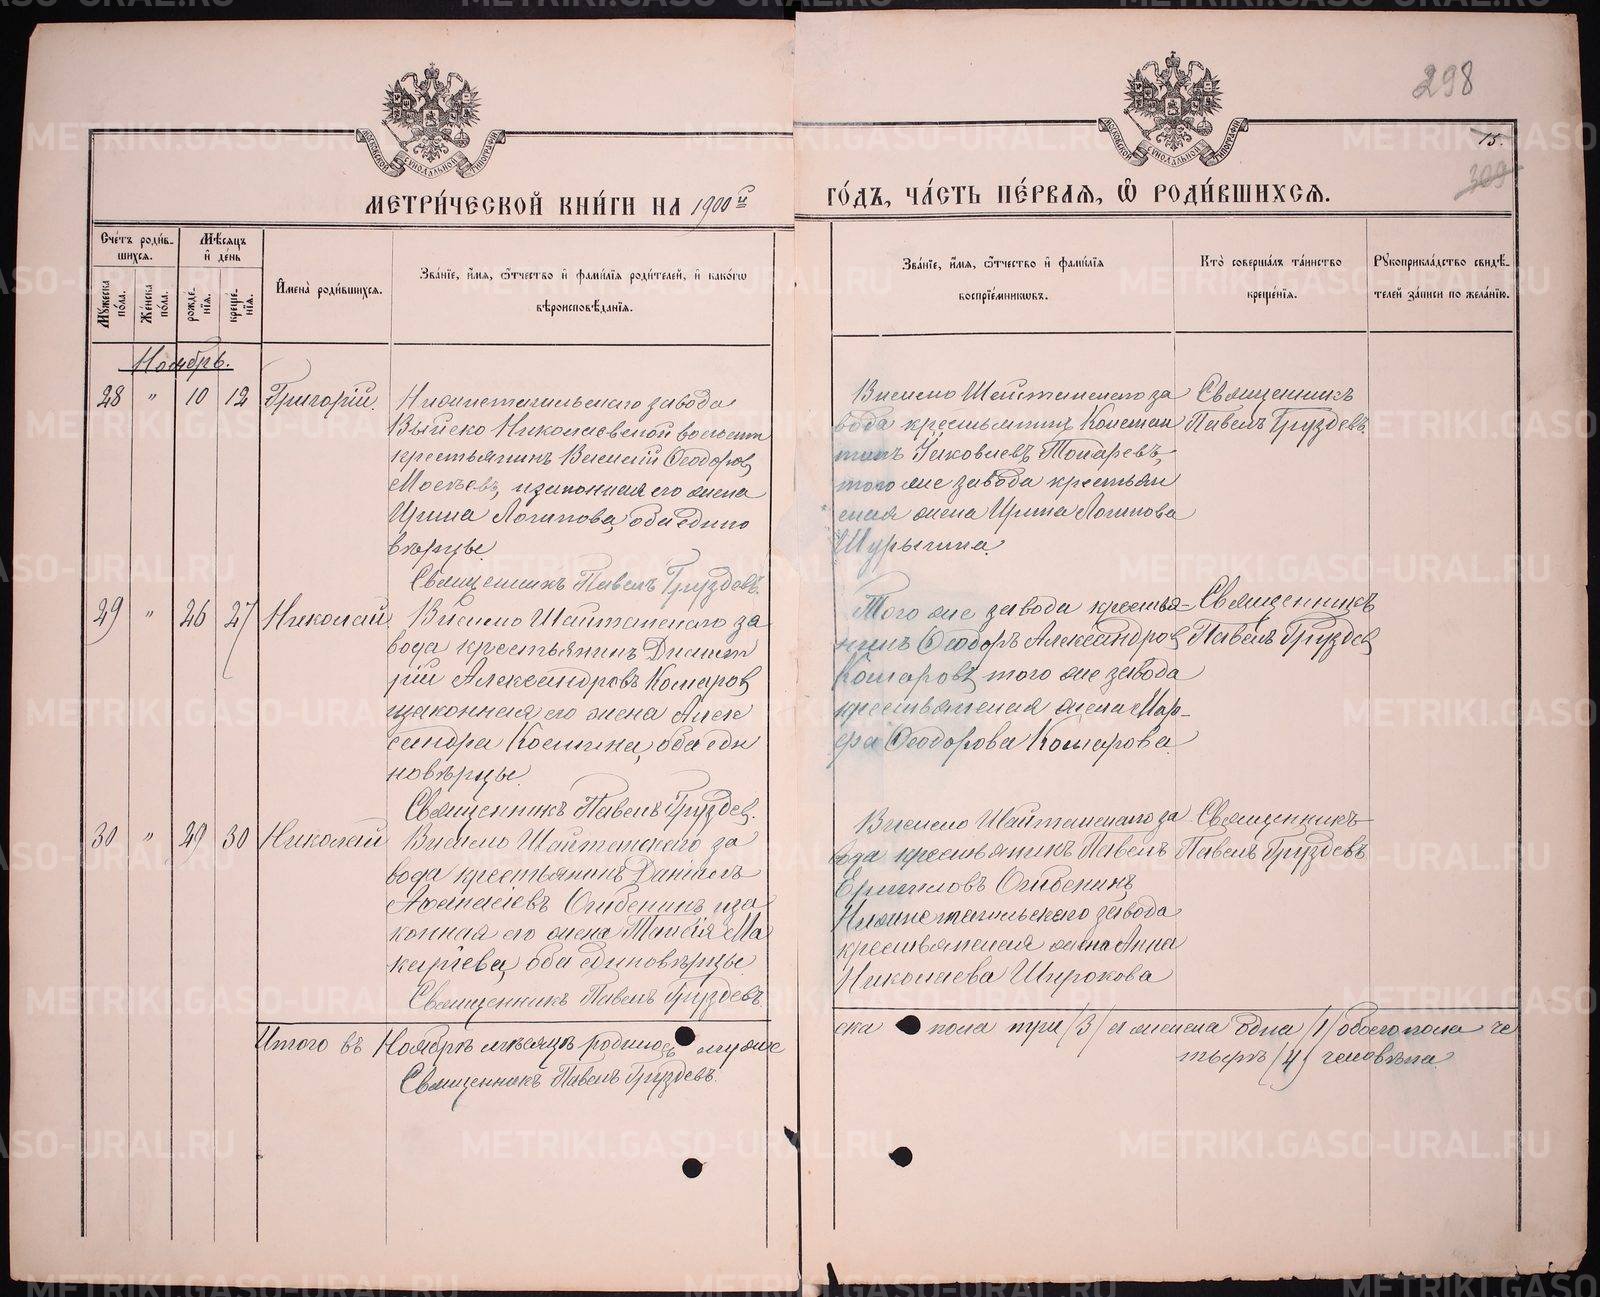 298
15.
309
МОСКОВСКОЙ СѴНОДАЛЬНОЙ ТИПОГРАФІИ
МОСКОВСКОЙ СѴНОДАЛЬНОЙ ТИПОГРАФІИ
МЕТРИ́ЧЕСКОЙ КНИ́ГИ НА 1900й ГО́ДЪ, ЧА́СТЬ ПЕ́РВАЯ, Ѡ РОДИ́ВШИХСЯ.
Сче́тъ роди́в-
шихся.
Мѣ́сяцъ
и де́нь
Му́жеска
по́ла.
Же́нска
по́ла.
рожде-
нїя.
креще-
нїя.
И́мена роди́вшихся.
Зва́нїе, и́мя, ѻ҆́тчество и фами́лїя роди́телей, и како́гѡ
вѣроисповѣ́данїя.
Зва́нїе, и́мя, ѻ҆́тчество и фами́лїя
воспрїе́мниковъ.
Кто̀ соверша́лъ та́инство
креще́нїя.
Рꙋкоприкла́дство свидѣ́-
телей за́писи по жела́нїю.
Ноябрь.
28 " 10 12 Григорій.
Нижнетагильскаго завода
Выйско Николаевской волости
крестьянинъ Василій Ѳеодоров
Мосѣевъ, изаконная его жена
Ирина Логинова, оба едино
вѣрцы
Священникъ Павелъ Груздевъ.
Висимо Шайтанскаго за
вода крестьянинъ Констан
тинъ Яковлевъ Токаревъ,
того же завода крестьян
ская жена Ирина Логинова
Шурыгина
Священникъ
Павелъ Груздевъ.
29 " 26 27 Николай
Висимо Шайтанскаго за
вода крестьянинъ Димит
рій Александровъ Комаров
изаконная его жена Алек
сандра Космина, оба еди
новѣрцы
Священникъ Павелъ Груздев.
Того же завода крестья-
нинъ Ѳеодоръ Александров
Комаровъ, того же завода
крестьянская жена Мар-
ѳа Ѳеодорова Комарова
Священникъ
Павелъ Груздев
30 " 29 30 Николай
Висимо Шайтанскаго за
вода крестьянинъ Даніилъ
Аѳанасіевъ Огибенинъ иза
конная его жена Таисія Ма
каріева, оба единовѣрцы
Священникъ Павелъ Груздевъ
Висимо Шайтанскаго за
вода крестьянинъ Павелъ
Ермиловъ Огибенинъ
Нижнетагильскаго завода
крестьянская жена Анна
Николаева Широкова
Священникъ
Павелъ Груздевъ
Итого въ Ноябрѣ мѣсяцѣ родилось муже
ска пола три /3/ и женска одна /1/ обоего пола че
тыре /4/ человѣка.
Священникъ Павелъ Груздевъ.
METRIKI.GASO-URAL.RU